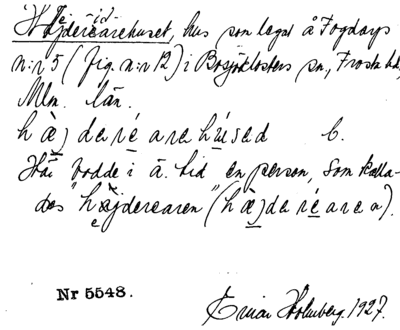 Hejderearehuset, hus som legat å Fogdarps
n:r 5 (fig. n:r 12) i Bosjöklosters sn, Frosta hd,
Mlm. län.
hæjderéarehúsed b.
Här bodde i ä. tid en person, som kalla-
des "hejderearen" (hæjderéaren).
Nr 5548.
Einar Holmberg. 1927.